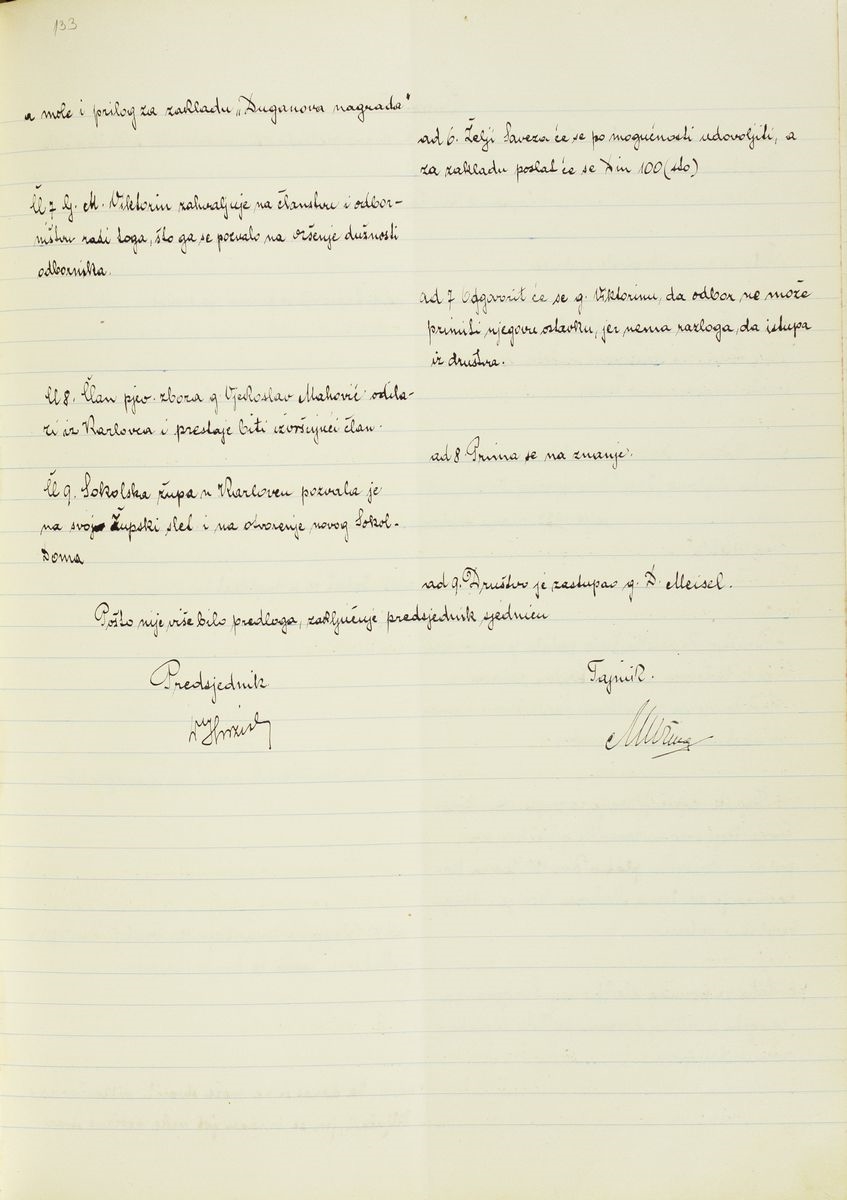 133
a mole i prilog za zakladu „Duganova nagrada"
ad 6. Želji Saveza će se po mogućnosti udovoljiti, a
za zakladu poslat će se Din 100 (sto)
Čl 7 G. M. Viktorin zahvaljuje na članstvu i odbor-
ništvu radi toga, što ga se pozvalo na vršenje dužnosti
odbornika.
ad 7 Odgovorit će se g. Viktorinu, da odbor ne može
primiti njegovu ostavku, jer nema razloga, da istupa
iz društva.
Čl 8. Član pjev. zbora g. Vjekoslav Mahović odila-
zi iz Karlovca i prestaje biti izvršujući član.
ad 8 Prima se na znanje.
Čl 9. Sokolska župa u Karlovcu pozvala je
na svoj Župski slet i na otvorenje novog Sokol-
Doma
ad 9. Društvo je zastupao g. D. Meisel.
Pošto nije više bilo predloga, zaključuje predsjednik sjednicu
Predsjednik
Tajnik.